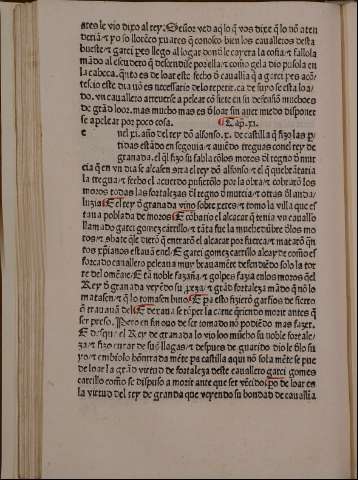 ares le vio dixo al rey: Señor ved aq̃l q̃ vos dixe q̃ lo nõ aten
deriã ⁊ yo so llorẽço xuares q̃ conosco bien los cavalleros desta
hueste ⁊ garci peres llego al logar donde le cayera la cofia ⁊ fallola
mãdo al escudero q̃ descendiese por ella ⁊ como gela dio pusola en
la cabeça. quãto es de loar este fecho d cavallia q̃ a garci peres acõ
tes.io este dia vos es necessario de lo repetir. ca de suyo se esta loa
do. vn cavallero atreverse a pelear cõ siete en su defension mucho es
de grãd loor. mas mucho mas es d loar sin aver miedo disponer
se a pelear por poca cosa. Cap.xi.
e nel .xi. año del rey dõ alfonso. x. de castilla q̃ fizo las p̃
tidas estãdo en segovia ⁊ aviẽdo treguas con el rey de
granada. el q̃l fizo su fabla cõlos moros dl regno d mur
cia q̃ en vn dia se alcasen cõtra el rey dõ alfonso ⁊ el q̃ quebrãtaria
la tregua ⁊ fecho el acuerdo pusierõlo por la obra ⁊ cobrarõ los
moros todas las fortalezas dl regno d murcia ⁊ otras dl anda/
luzia E el rey d granada vino sobre xeres ⁊ tomo la villa que es
tava poblada de moros E cõbatio el alcaçar q̃ tenia vn cavallo
llamado garci gomez carrillo ⁊ tãta fue la muchedũbre dlos mo
ros ⁊ cõbate q̃le dierõ q̃ entrarõ el alcaçar por fuerca ⁊ matarõ q̃n
tos xp̃ianos estavã enel E garci gomez carrillo alcayde como es
forcado cavallero peleava muy bravamẽte defendiẽdo solo la tor
re del omẽaje E tã noble fazaña ⁊ golpes fazia enlos moros q̃el
Rey d granada veyẽdo su prza ⁊ grãd fortaleza mãdo q̃ nõ lo
matasen ⁊ q̃ lo tomasen bivo E pa esto fizierõ garfios de fierro
q̃ travauã del E dexava se rõper la carne q̃riendo morir antes q̃
ser preso. Pero en fin ovo de ser tomado nõ podiẽdo mas fazer.
E desque el Rey de granada lo vio loo mucho su noble fortale/
za ⁊ fizo curar de sus llagas ⁊ despues de guarido dio le dlo su
yo ⁊ embiolo hõrrada mẽte pa castilla aqui nõ sola mẽte se pue
de loar la grãd virtud de fortaleza deste cavallero garci gomes
carrillo como se dispuso a morir ante que ser vẽcido po de loar es
la virtud del rey de granada que veyendo su bondad de cavallia